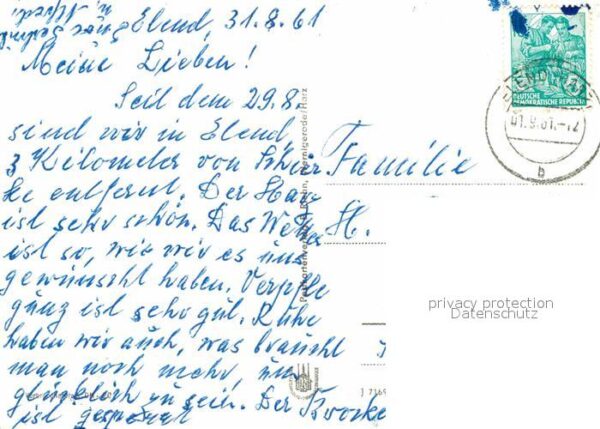 Elend, 31.8.61
Meine Lieben!
Seit dem 29.8.
sind wir in Elend,
3 Kilometer von Schier
ke entfernt. Der Harz
ist sehr schön. Das Wetter
ist so, wie wir es uns
gewünscht haben. Verpfle
gung ist sehr gut. Ruhe
haben wir auch, was braucht
man noch mehr, um
glücklich zu sein. Der Brocken
ist gesperrt
Familie
H.
DEUTSCHE
DEMOKRATISCHE REPUBLIK
privacy protection
Datenschutz